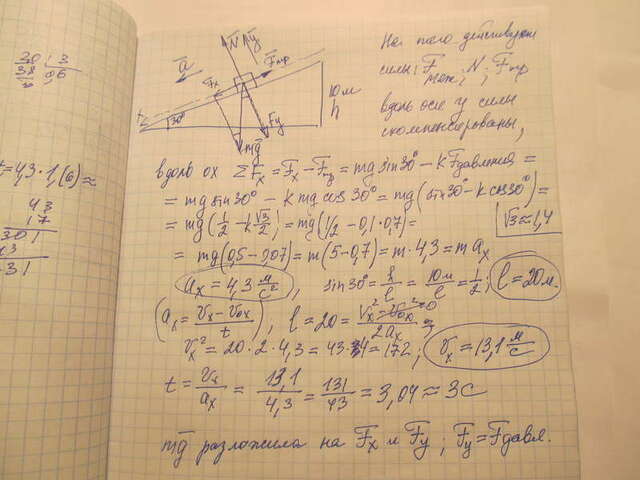 30 | 3
38 | 96
t = 4,3 · 1,(6) ≈
43
17
301
43
N̄
ȳ
F̄тр
ā
Fx
10 м
h
30°
Fy
mḡ
На тело действуют
силы: F̄тяж; N̄; F̄тр
вдоль оси y силы
скомпенсированы,
вдоль ох ΣF̄x = F̄x − F̄тр = mg sin30° − k Fдавления =
= mg sin30° − k mg cos30° = mg (sin30° − k cos30°) =
= mg (1/2 − k √3/2) = mg (1/2 − 0,1 · 0,7) =
√3 ≈ 1,4
= mg (0,5 − 0,07) = m (5 − 0,7) = m · 4,3 = m ax
ax = 4,3 м/с², sin30° = h/l = 10м/l = 1/2; l = 20 м.
(ax = (vx − vox)/t), l = 20 = (vx² − vox²)/2ax ⇒
vx² = 20 · 2 · 4,3 = 43 · 4 = 172; vx = 13,1 м/с
t = vx/ax = 13,1/4,3 = 131/43 = 3,04 ≈ 3с
mḡ разложила на F̄x и F̄y; F̄y = F̄давл.